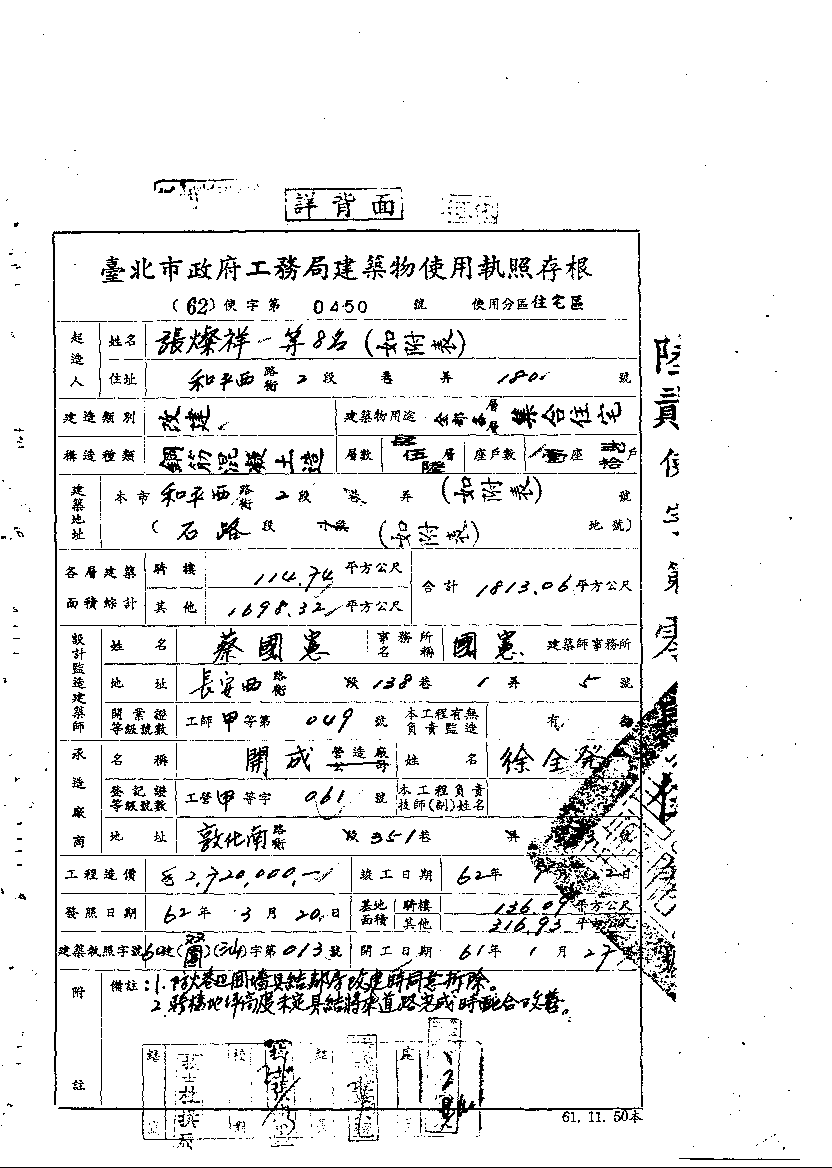 詳背面
臺北市政府工務局建築物使用執照存根
(62)使字第 0450 號 使用分區住宅區
起造人 姓名 張燦祥一等8名(如附表)
住址 和平西路街 2段 巷 弄 180 號
建造類別 改建 建築物用途 全部各層層集合住宅
構造種類 鋼筋混凝土造 層數 伍 層 座戶數 座 拾 戶
建築地址 本市和平西路街 2段 巷 弄(如附表) 號
(石路段 小段 (如附表) 地號)
各層建築面積綜計 騎樓 114.74 平方公尺 合計 1813.06 平方公尺
其他 1698.32 平方公尺
設計監造建築師 姓名 蔡國憲 事務所名稱 國憲 建築師事務所
地址 長安西路街 段138巷 1弄 5號
開業證等級號數 工師甲等第 049 號 本工程有無負責監造 有
承造廠商 名稱 開成營造廠公司 姓名 徐全發
登記證等級號數 工營甲等字 061 號 本工程負責技師(副)姓名
地址 敦化南路街 段351巷 弄 號
工程造價 2,720,000 竣工日期 62年 月 22日
發照日期 62年 3月 20日 基地面積 騎樓 136.09 平方公尺
其他 316.93 平方公尺
建築執照字號 60 字第013號 開工日期 61年 1月 27
附註 備註:1. 巷 圍牆具結 改建時同意拆除。
2. 騎樓地坪高度未定具結將來道路完成時配合改善。
61.11.50本
陸貳使字第零